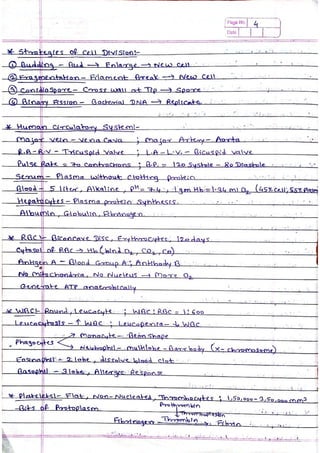 Page No. 4
Date
* Strategies of Cell DIVISION:-
① Budding - Bud → Enlarge → New cell
② Fragmentation - Filament Break → New Cell
③ Conidiospore - Cross wall at Tip → Spore
④ Binary Fission - Bacterial DNA → Replicate
* Human Circulatory System:-
Major vein - Vena Cava ; Major Artery - Aorta
R.A - R.V - Tricuspid Valve ; L.A - L.V. - Bicuspid valve
Pulse Rate = 70 Contractions ; B.P. = 120 Systole - 80 Diastole
Serum - Plasma without Clotting protein
Blood - 5 liter, Alkaline, pH = 7.4, 1gm Hb = 1.34 ml O₂ (45% Cell; 55%
Hepatocytes - Plasma protein Synthesis.
Albumin, Globulin, Fibrinogen
* RBC:- Biconcave Disc, Erythrocytes, 120 days
Cytosol of RBC → Hb (bind O₂, CO₂, CO)
Antigen A - Blood Group A ; Antibody B
No Mitochondria, No Nucleus → More O₂
Generate ATP anaerobically
* WBC:- Round, Leucocyte ; WBC : RBC = 1:600
Leucocytosis - ↑ WBC ; Leucopenia - ↓ WBC
Phagocytes
Monocyte - Bean shape
Neutrophil - multilobe - Barr body (X - chromosome)
Eosinophil - 2 lobe, dissolve blood clot
Basophil - 3 lobe, Allergic Response
* Platelets:- Flat, Non-Nucleated, Thrombocytes ; 1,50,000 - 3,50,000 mm³
-Bits of Protoplasm
Prothrombin
↓ Thromboplastin
Fibrinogen Thrombin → Fibrin